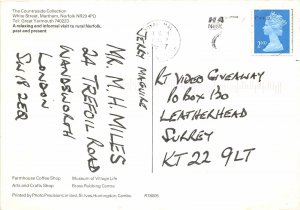 The Countryside Collection
White Street, Martham, Norfolk NR29 4PQ
Tel: Great Yarmouth 740223
A relaxing and informal visit to rural Norfolk,
past and present
JERRY MAGUIRE
MR. M. H. MILES
24 TREFOIL ROAD
WANDSWORTH
LONDON
SW18 2EQ
RT VIDEO GIVEAWAY
PO BOX 130
LEATHERHEAD
SURREY
KT22 9LT
Farmhouse Coffee Shop
Museum of Village Life
Arts and Crafts Shop
Brass Rubbing Centre
Printed by Photo Precision Limited, St. Ives, Huntingdon, Cambs.